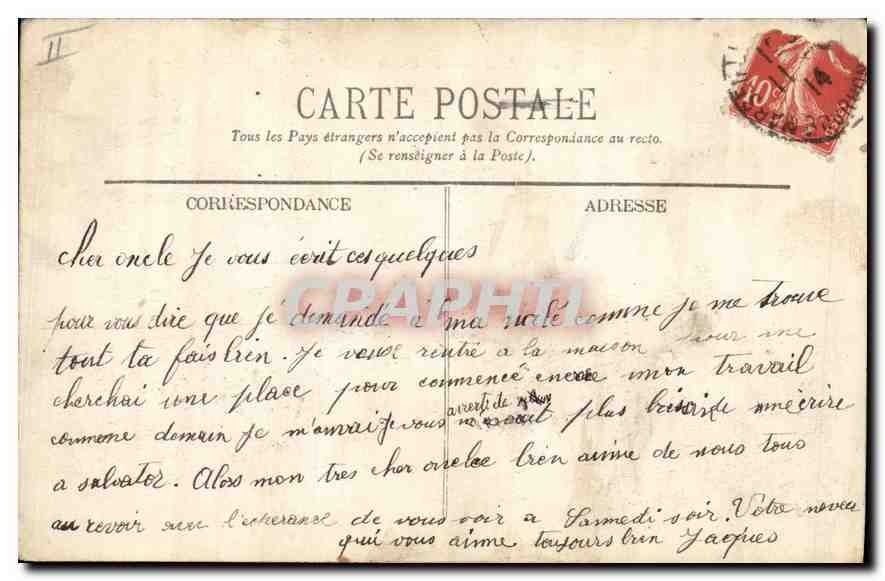 II
CARTE POSTALE
Tous les Pays étrangers n'acceptent pas la Correspondance au recto.
(Se renseigner à la Poste).
10c
11
14
CORRESPONDANCE
ADRESSE
CPAPHIL
cher oncle Je vous écrit ces quelques
pour vous dire que je demandé à ma comme je me trouve
tout ta fais bien. Je rentré a la maison pour me
cherchai une place pour commencé encore mon travail
comme demain Je m'anvai Je vous averti de plus besoin de mécrire
a salvator. Alors mon tres cher oncle bien aimé de nous tous
au revoir avec l'esperance de vous voir a Samedi soir. Votre neveu
qui vous aime toujours bien Jacques